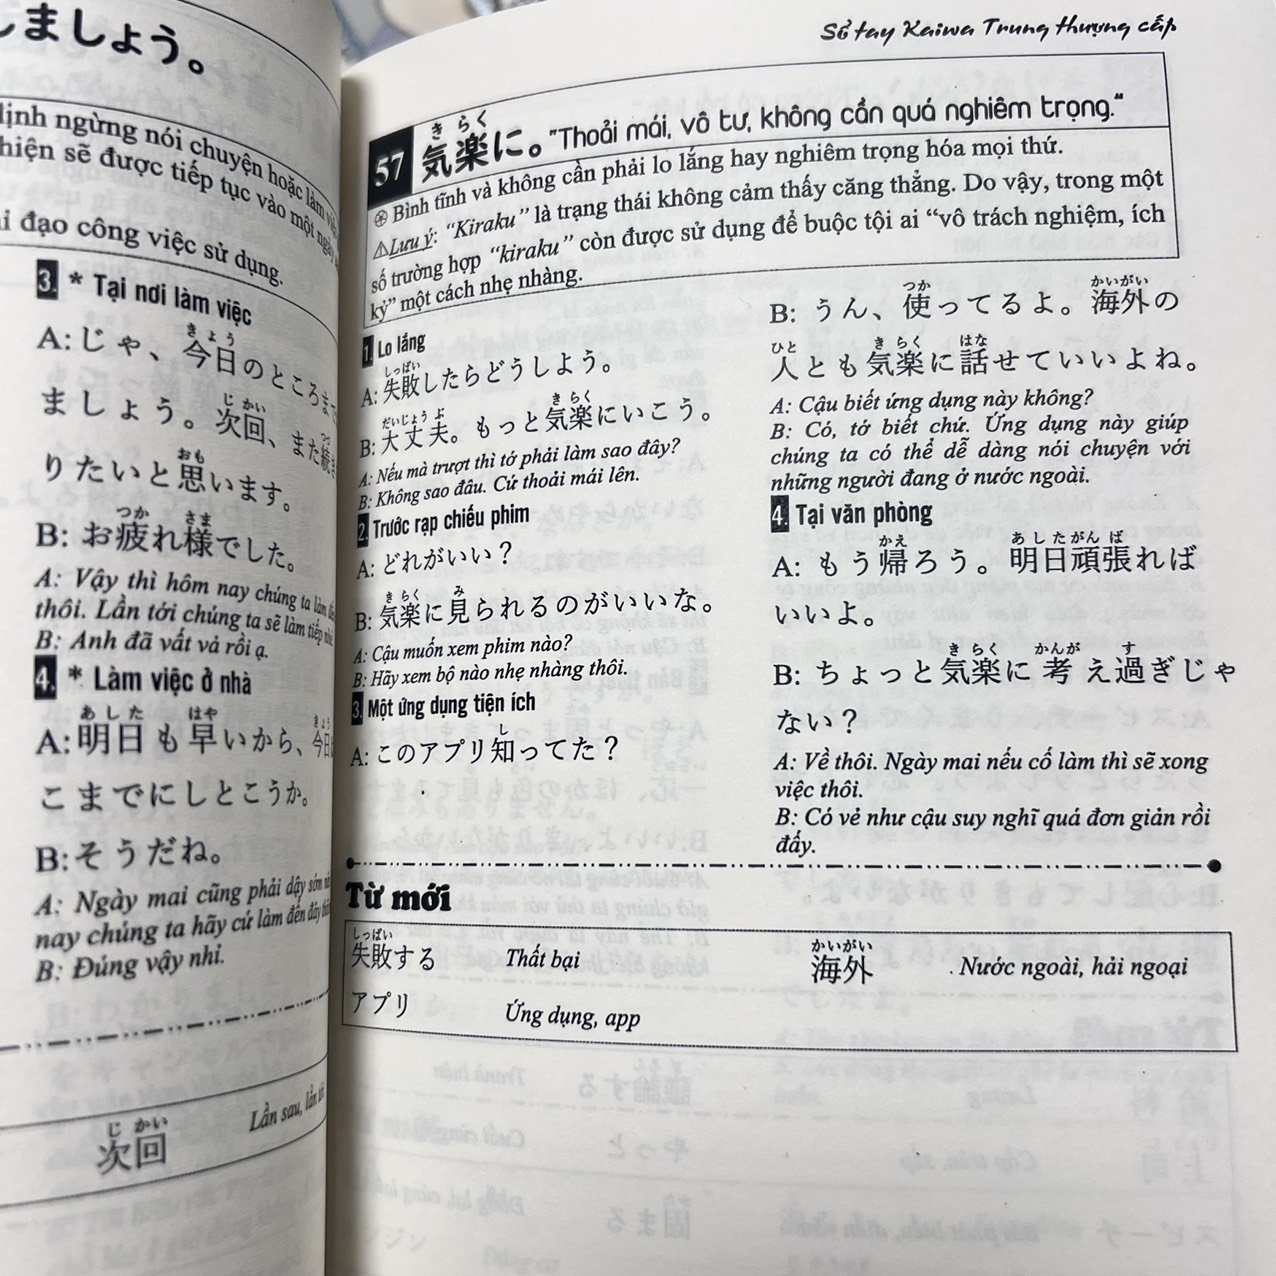 しましょう。
định ngừng nói chuyện hoặc làm
hiện sẽ được tiếp tục vào một ngày
đạo công việc sử dụng.
3. * Tại nơi làm việc
A: じゃ、今日のところまで
きょう
ましょう。次回、また続き
じかい
つづ
りたいと思います。
おも
B: お疲れ様でした。
つか さま
A: Vậy thì hôm nay chúng ta làm đến
thôi. Lần tới chúng ta sẽ làm tiếp nhé.
B: Anh đã vất vả rồi ạ.
4. * Làm việc ở nhà
A: 明日も早いから、今日
あした はや きょう
こまでにしとこうか。
B: そうだね。
A: Ngày mai cũng phải dậy sớm nên
nay chúng ta hãy cứ làm đến đây
B: Đúng vậy nhỉ.
次回 Lần sau, lần tới
じかい
Sổ tay Kaiwa Trung thượng cấp
きらく
57 気楽に。"Thoải mái, vô tư, không cần quá nghiêm trọng."
Bình tĩnh và không cần phải lo lắng hay nghiêm trọng hóa mọi thứ.
⚠Lưu ý: "Kiraku" là trạng thái không cảm thấy căng thẳng. Do vậy, trong một
số trường hợp "kiraku" còn được sử dụng để buộc tội ai "vô trách nghiệm, ích
kỷ" một cách nhẹ nhàng.
1. Lo lắng
しっぱい
A: 失敗したらどうしよう。
だいじょうぶ きらく
B: 大丈夫。もっと気楽にいこう。
A: Nếu mà trượt thì tớ phải làm sao đây?
B: Không sao đâu. Cứ thoải mái lên.
2. Trước rạp chiếu phim
A: どれがいい？
きらく み
B: 気楽に見られるのがいいな。
A: Cậu muốn xem phim nào?
B: Hãy xem bộ nào nhẹ nhàng thôi.
3. Một ứng dụng tiện ích
し
A: このアプリ知ってた？
つか かいがい
B: うん、使ってるよ。海外の
ひと きらく はな
人とも気楽に話せていいよね。
A: Cậu biết ứng dụng này không?
B: Có, tớ biết chứ. Ứng dụng này giúp
chúng ta có thể dễ dàng nói chuyện với
những người đang ở nước ngoài.
4. Tại văn phòng
かえ あしたがんば
A: もう帰ろう。明日頑張れば
いいよ。
きらく かんが す
B: ちょっと気楽に考え過ぎじゃ
ない？
A: Về thôi. Ngày mai nếu cố làm thì sẽ xong
việc thôi.
B: Có vẻ như cậu suy nghĩ quá đơn giản rồi
đấy.
Từ mới
しっぱい かいがい
失敗する Thất bại 海外 Nước ngoài, hải ngoại
アプリ Ứng dụng, app